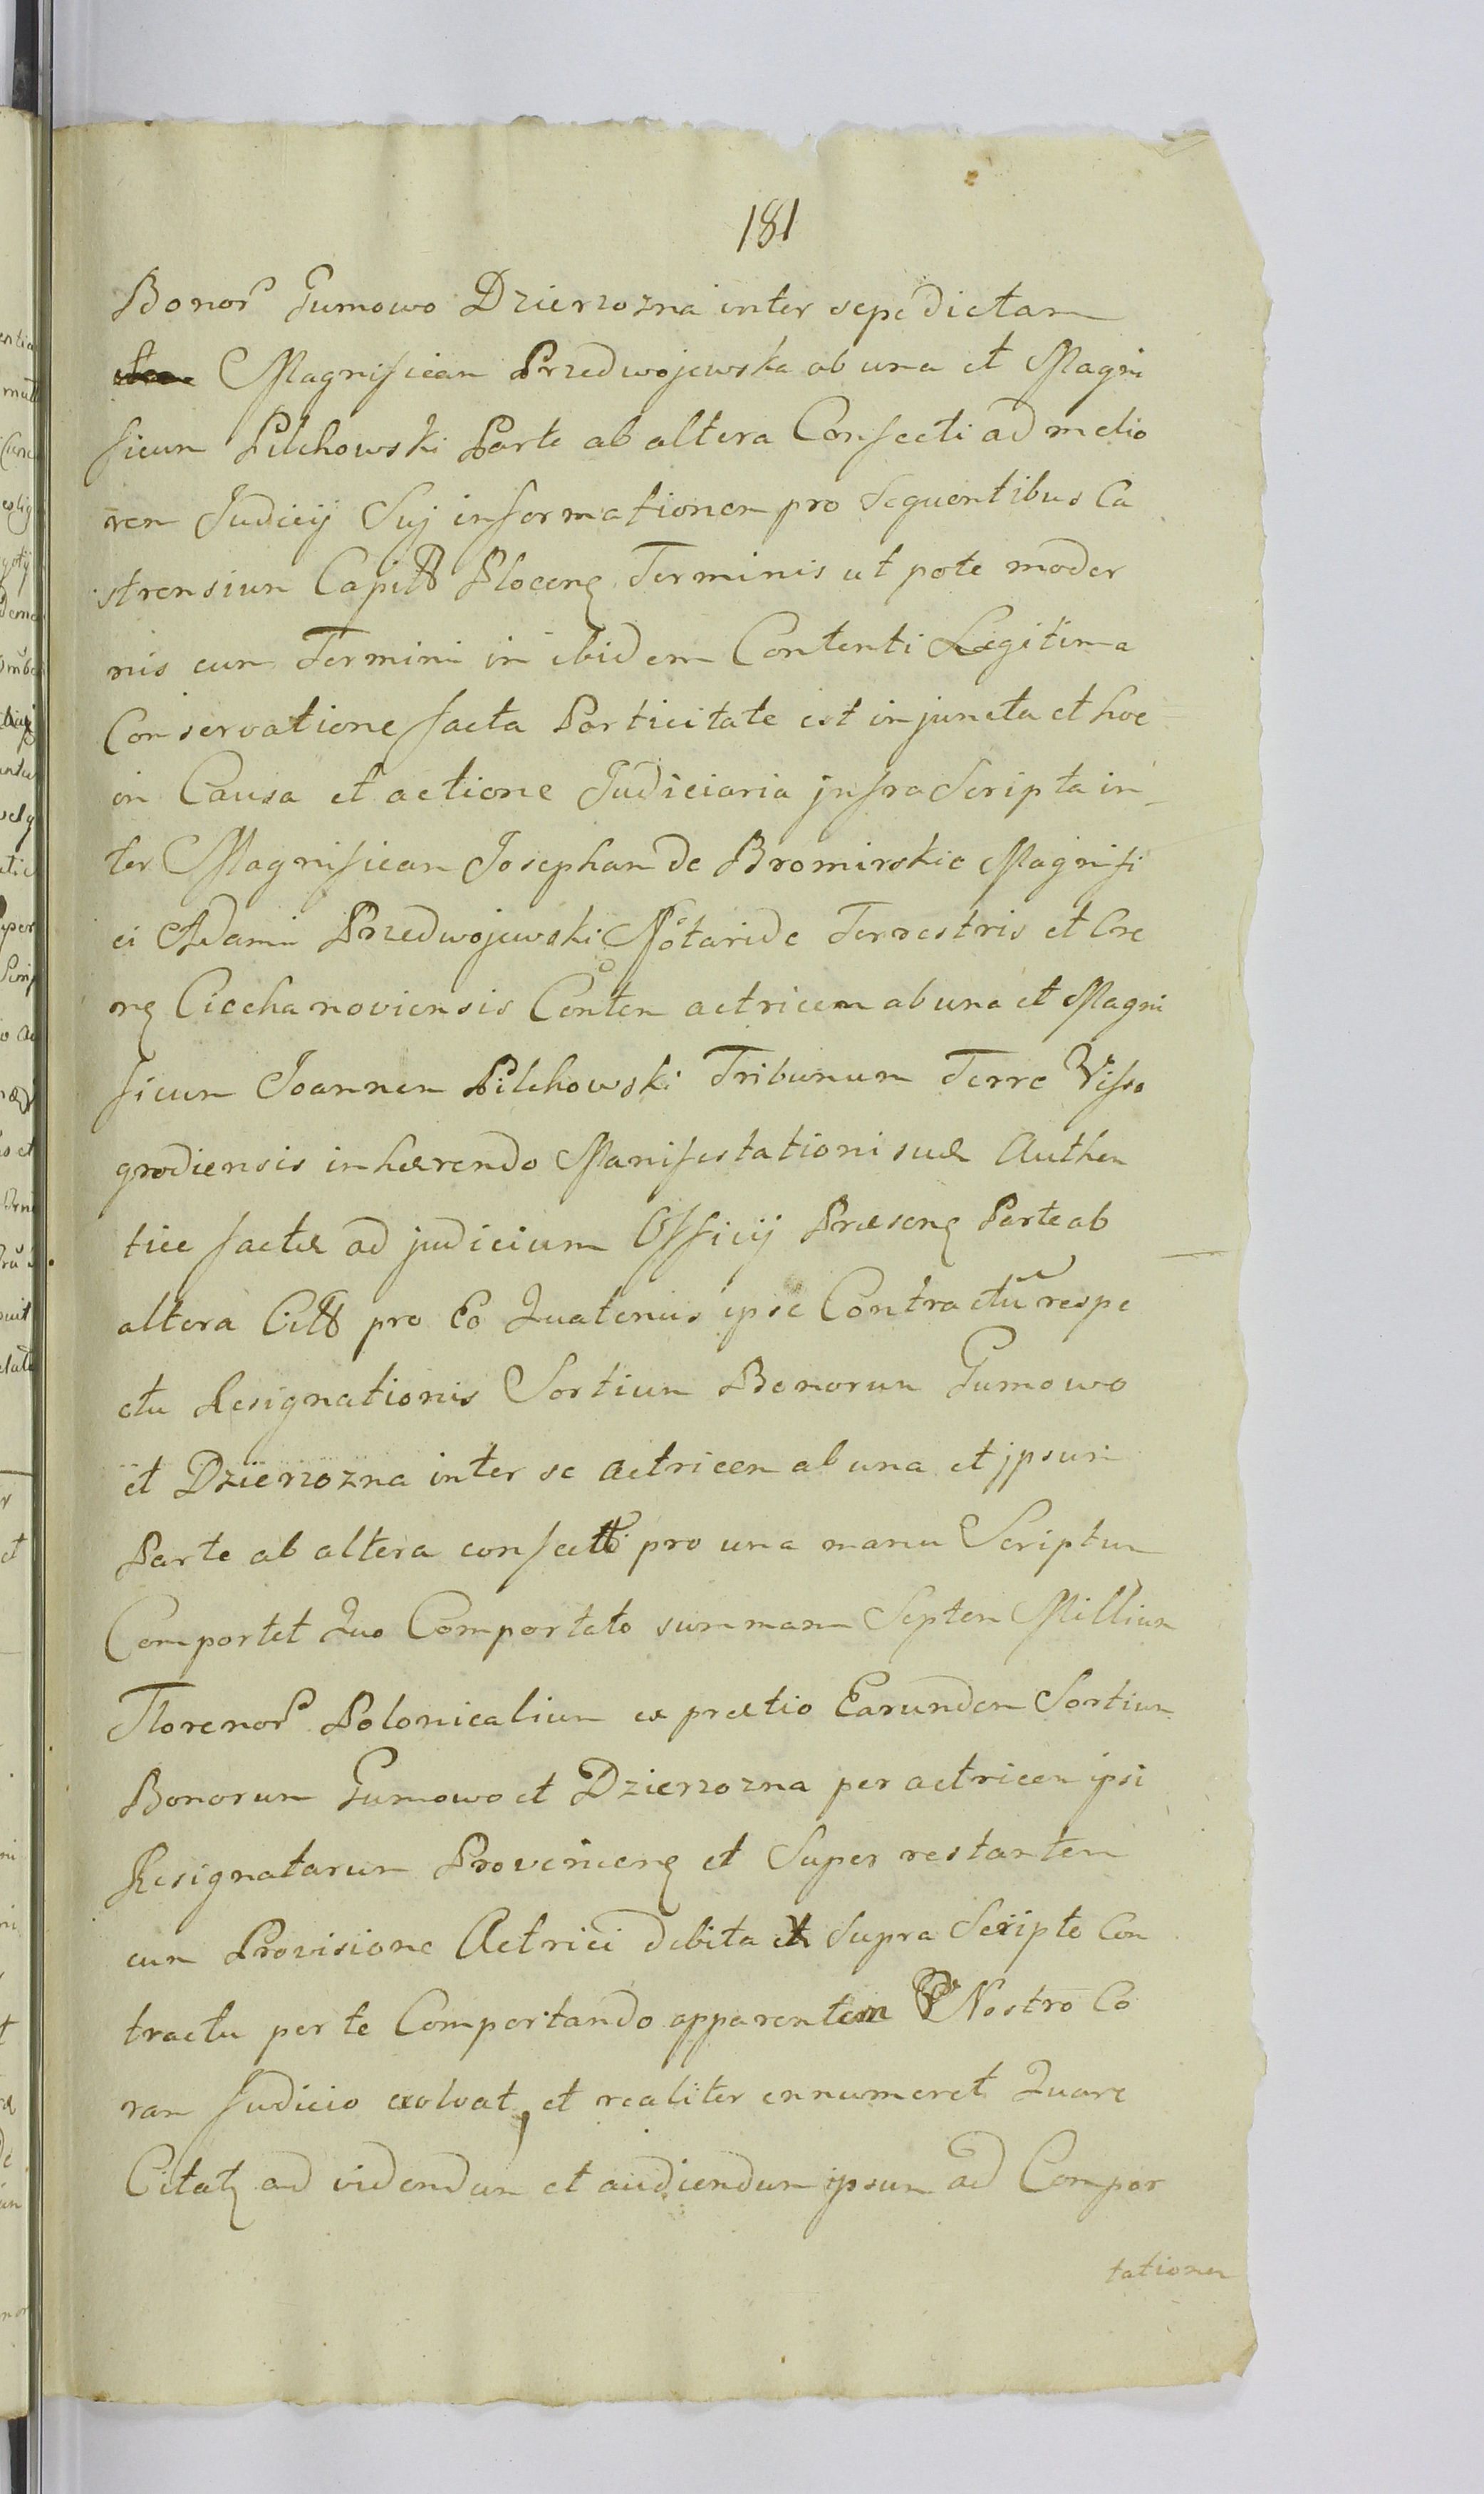 181
Bonor Gumowo Dzierzozna inter sepedictam
Magnificam Przedwojewska ab una et Magni
ficum Pilchowski Parte ab altera Confecti ad melio
rem Judicij Suj informationem pro Sequentibus Ca
strensium Capitt Plocens Terminis ut pote moder
nis cum Termini in ibidem Contenti Legitima
Conservatione facta Particitate est injuncta et hoc
in Causa et actione Judiciaria jnfra Scripta in
ter Magnificam Josepham de Bromirskie Magnifi
ci Adami Przedwojewski Notaride Terrestris et Cre
ns Ciechanoviensis Conten actricem ab una et Magni
ficum Joannem Pilchowski Tribunum Terre Visso
grodiensis inhærendo Manifestationi suæ Authen
tice factæ ad judicium Officij Præsens Parte ab
altera Citt pro Eo Quatenus ipse Contractū respe
ctu Resignationis Sortium Bonorum Gumowo
et Dzierzozna inter se Actricem ab una et jpsum
Parte ab altera confectti pro una manu Scriptum
Comportet Quo Comportato summam Septem Millium
Florenor Polonicalium ex prætio Earundem Sortium
Bonorum Gumowo et Dzierzozna per actricem ipsi
Resignatarum Proveniens et Super restantem
cum Provisione Actrici debita et Supra Scripto Con
tractu per te Comportando apparentem Nostro Co
ram Judicio exolvat, et realiter ennumeret Quare
Citats ad videndum et audiendum ipsum ad Compor
tationem